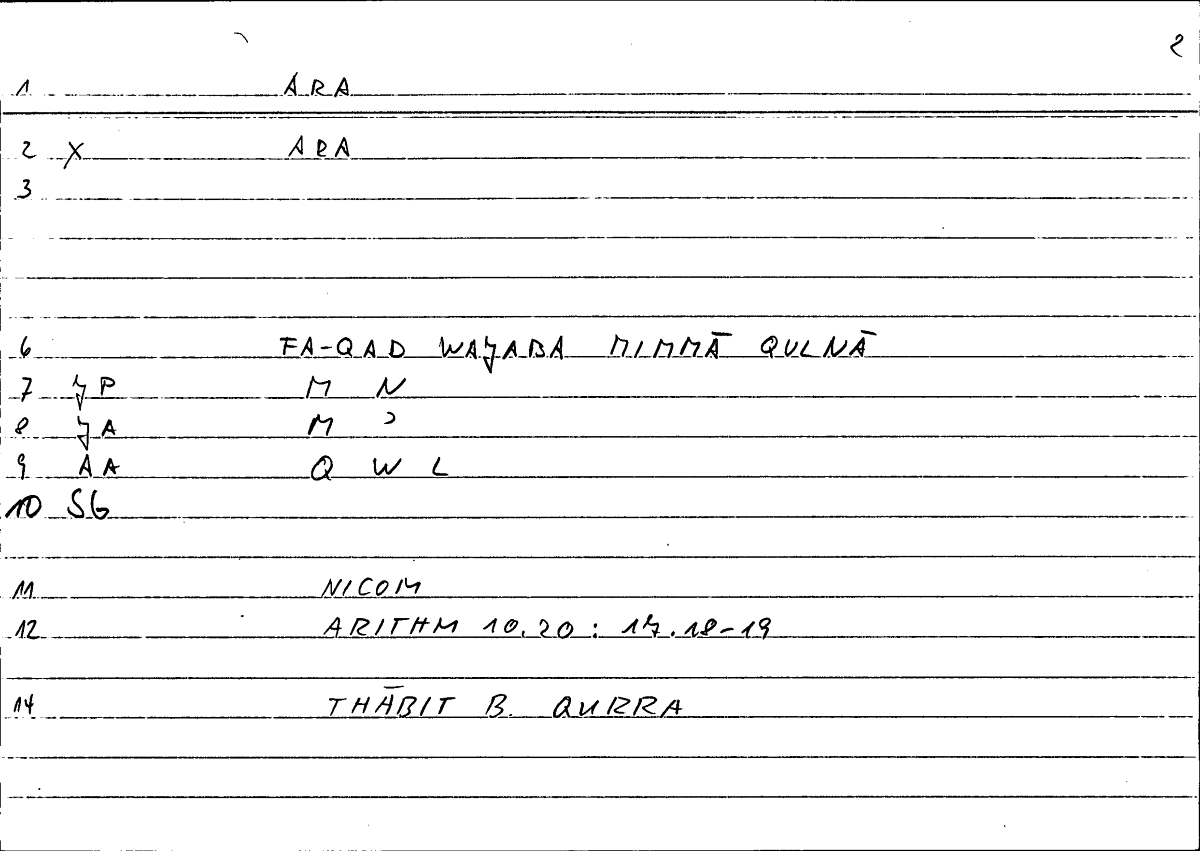 2
1 ÁRA
2 X ARA
3
6 FA-QAD WAJABA MIMMĀ QULNĀ
7 JP M N
8 JA M ʾ
9 AA Q W L
10 SG
11 NICOM
12 ARITHM 10.20 : 17.18-19
14 THĀBIT B. QURRA